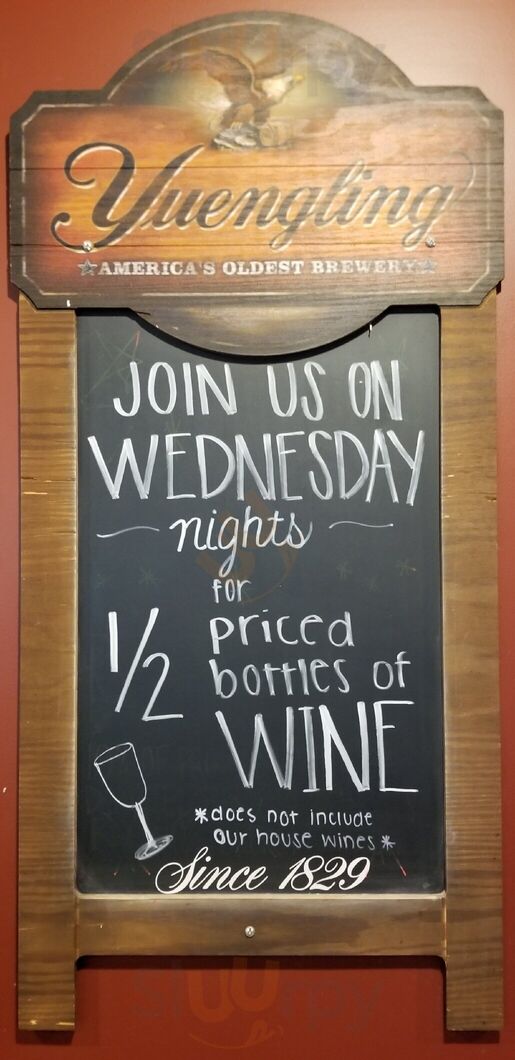 Yuengling
AMERICA'S OLDEST BREWERY
JOIN US ON
WEDNESDAY
nights
for
1/2 priced
bottles of
WINE
*does not include
our house wines*
Since 1829
sluurpy